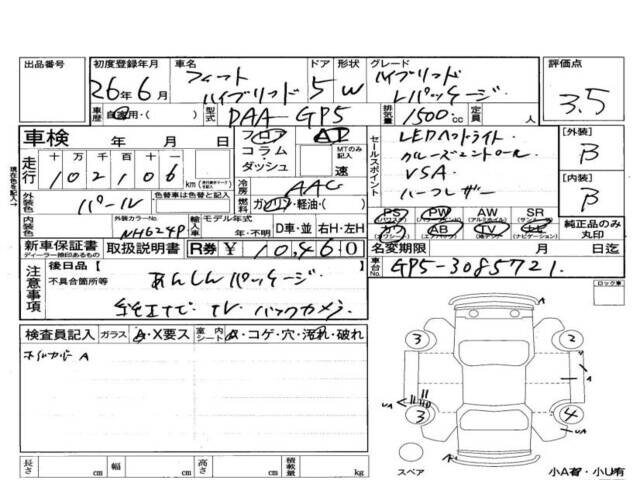 出品番号 初度登録年月 車名 ドア 形状 グレード 評価点
26年6月 フィット ハイブリッド 5 W ハイブリッド Lパッケージ 3.5
車歴 自家用・( ) 型式 DAA-GP5 排気量 1500cc 定員 人
車検 年 月 日 フロア AT セールスポイント LEDヘッドライト [外装] B
走行 十 万 千 百 十 一 コラム・ダッシュ MTのみ記入 速 クルーズコントロール
102106 km VSA
冷房 AAC ハーフレザー [内装] B
外装色 パール 色替車は色替と記入 燃料 ガソリン・軽油・( )
PS PW AW SR
(パワステ) (パワーウィンド) (アルミホイル) (サンルーフ)
内装色 外装カラーNo. NH624P 輸入車 モデル年式 年・不明 D車・並 右H・左H カワ AB TV ナビ 純正品のみ丸印
(エアバック) (ナビゲーション)
新車保証書 取扱説明書 R券 ¥ 10,460 名変期限 月 日迄
ディーラー捺印あるもの
注意事項 後日品【 あんしんパッケージ 】 車台No. GP5-3085721.
不具合箇所等 TV バックカメラ ロック車
検査員記入 ガラス A・X要ス 室内シート A・コゲ・穴・汚れ・破れ
A
A
3 2
A
UA 3 4
UA
A
長さ cm 幅 cm 高さ cm 積載量 kg
スペア 小A有・小U有
現在色を記入→